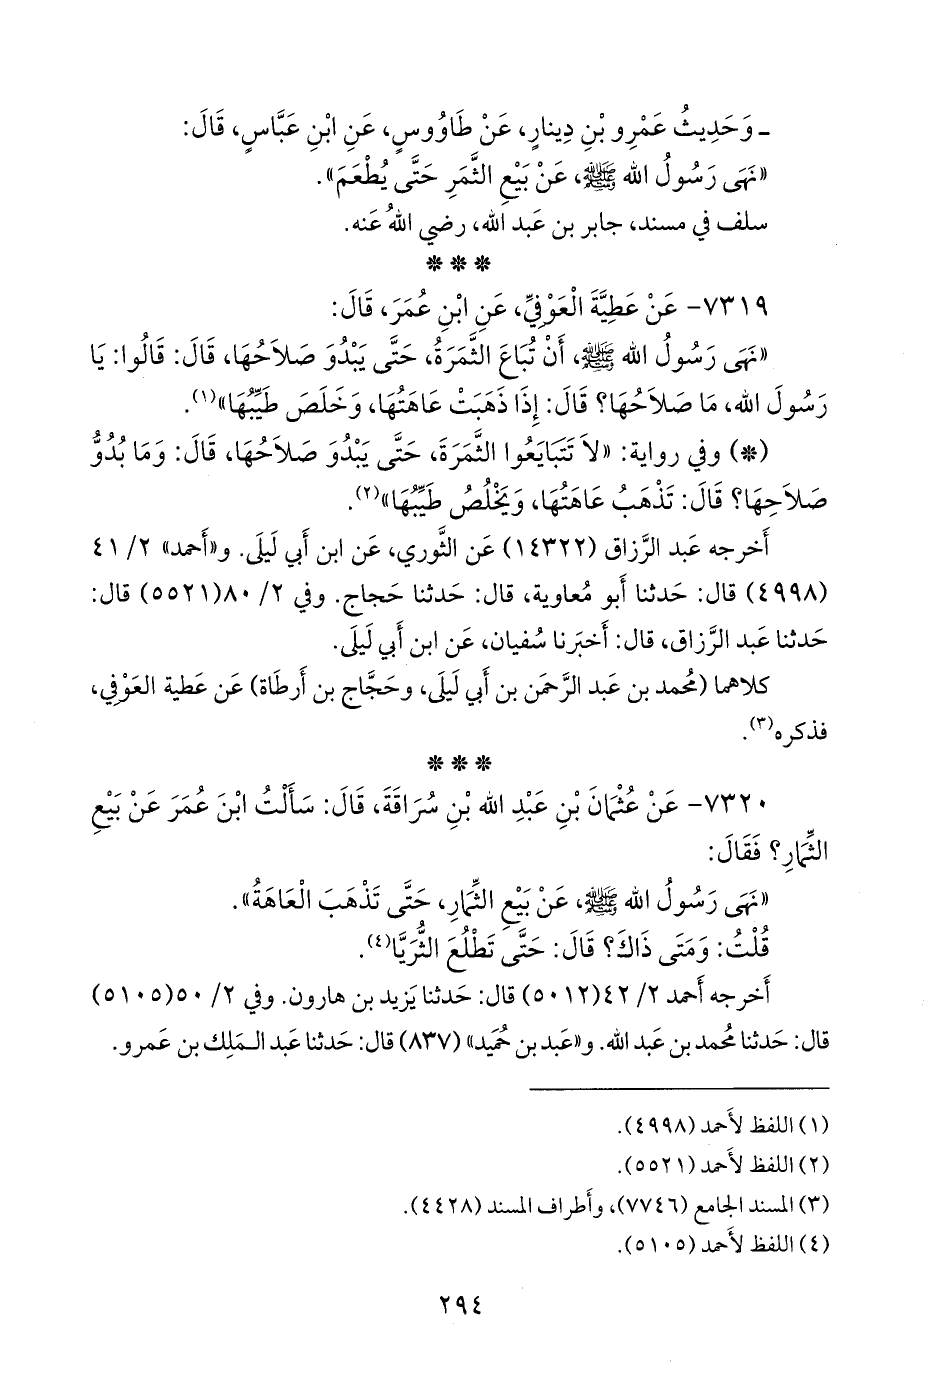 ـ وَحَدِيثُ عَمْرِو بْنِ دِينارٍ، عَنْ طَاوُوسٍ، عَنِ ابْنِ عَبَّاسٍ، قَالَ:
«نَهَى رَسُولُ الله ﷺ، عَنْ بَيْعِ الثَّمَرِ حَتَّى يُطْعَمَ».
سلف في مسند، جابر بن عَبد الله، رضي اللهُ عَنه.
* * *
٧٣١٩- عَنْ عَطِيَّةَ الْعَوْفِيِّ، عَنِ ابْنِ عُمَرَ، قَالَ:
«نَهَى رَسُولُ الله ﷺ، أَنْ تُبَاعَ الثَّمَرَةُ، حَتَّى يَبْدُوَ صَلَاحُهَا، قَالَ: قَالُوا: يَا
رَسُولَ الله، مَا صَلَاحُهَا؟ قَالَ: إِذَا ذَهَبَتْ عَاهَتُهَا، وَخَلَصَ طَيِّبُهَا»(١).
(*) وفي رواية: «لَا تَتَبَايَعُوا الثَّمَرَةَ، حَتَّى يَبْدُوَ صَلَاحُهَا، قَالَ: وَمَا بُدُوُّ
صَلَاحِهَا؟ قَالَ: تَذْهَبُ عَاهَتُهَا، وَيَخْلُصُ طَيِّبُهَا»(٢).
أَخرجه عَبد الرَّزاق (١٤٣٢٢) عَن الثَّوري، عَن ابن أَبي لَيلَى. و«أَحمد» ٢/ ٤١
(٤٩٩٨) قال: حَدثنا أَبو مُعاوية، قال: حَدثنا حَجاج. وفي ٢/ ٨٠(٥٥٢١) قال:
حَدثنا عَبد الرَّزاق، قال: أَخبَرنا سُفيان، عَن ابن أَبي لَيلَى.
كلاهما (مُحمد بن عَبد الرَّحمَن بن أَبي لَيلَى، وحَجَّاج بن أَرطَاة) عَن عَطية العَوْفي،
فذكره(٣).
* * *
٧٣٢٠- عَنْ عُثْمَانَ بْنِ عَبْدِ الله بْنِ سُرَاقَةَ، قَالَ: سَأَلْتُ ابْنَ عُمَرَ عَنْ بَيْعِ
الثِّمَارِ؟ فَقَالَ:
«نَهَى رَسُولُ الله ﷺ، عَنْ بَيْعِ الثِّمَارِ، حَتَّى تَذْهَبَ الْعَاهَةُ».
قُلْتُ: وَمَتَى ذَاكَ؟ قَالَ: حَتَّى تَطْلُعَ الثُّرَيَّا(٤).
أَخرجه أَحمد ٢/ ٤٢(٥٠١٢) قال: حَدثنا يَزيد بن هارون. وفي ٢/ ٥٠(٥١٠٥)
قال: حَدثنا مُحمد بن عَبد الله. و«عَبد بن حُميَد» (٨٣٧) قال: حَدثنا عَبد الـمَلِك بن عَمرو.
(١) اللفظ لأَحمد (٤٩٩٨).
(٢) اللفظ لأَحمد (٥٥٢١).
(٣) المسند الجامع (٧٧٤٦)، وأَطراف المسند (٤٤٢٨).
(٤) اللفظ لأَحمد (٥١٠٥).
٢٩٤